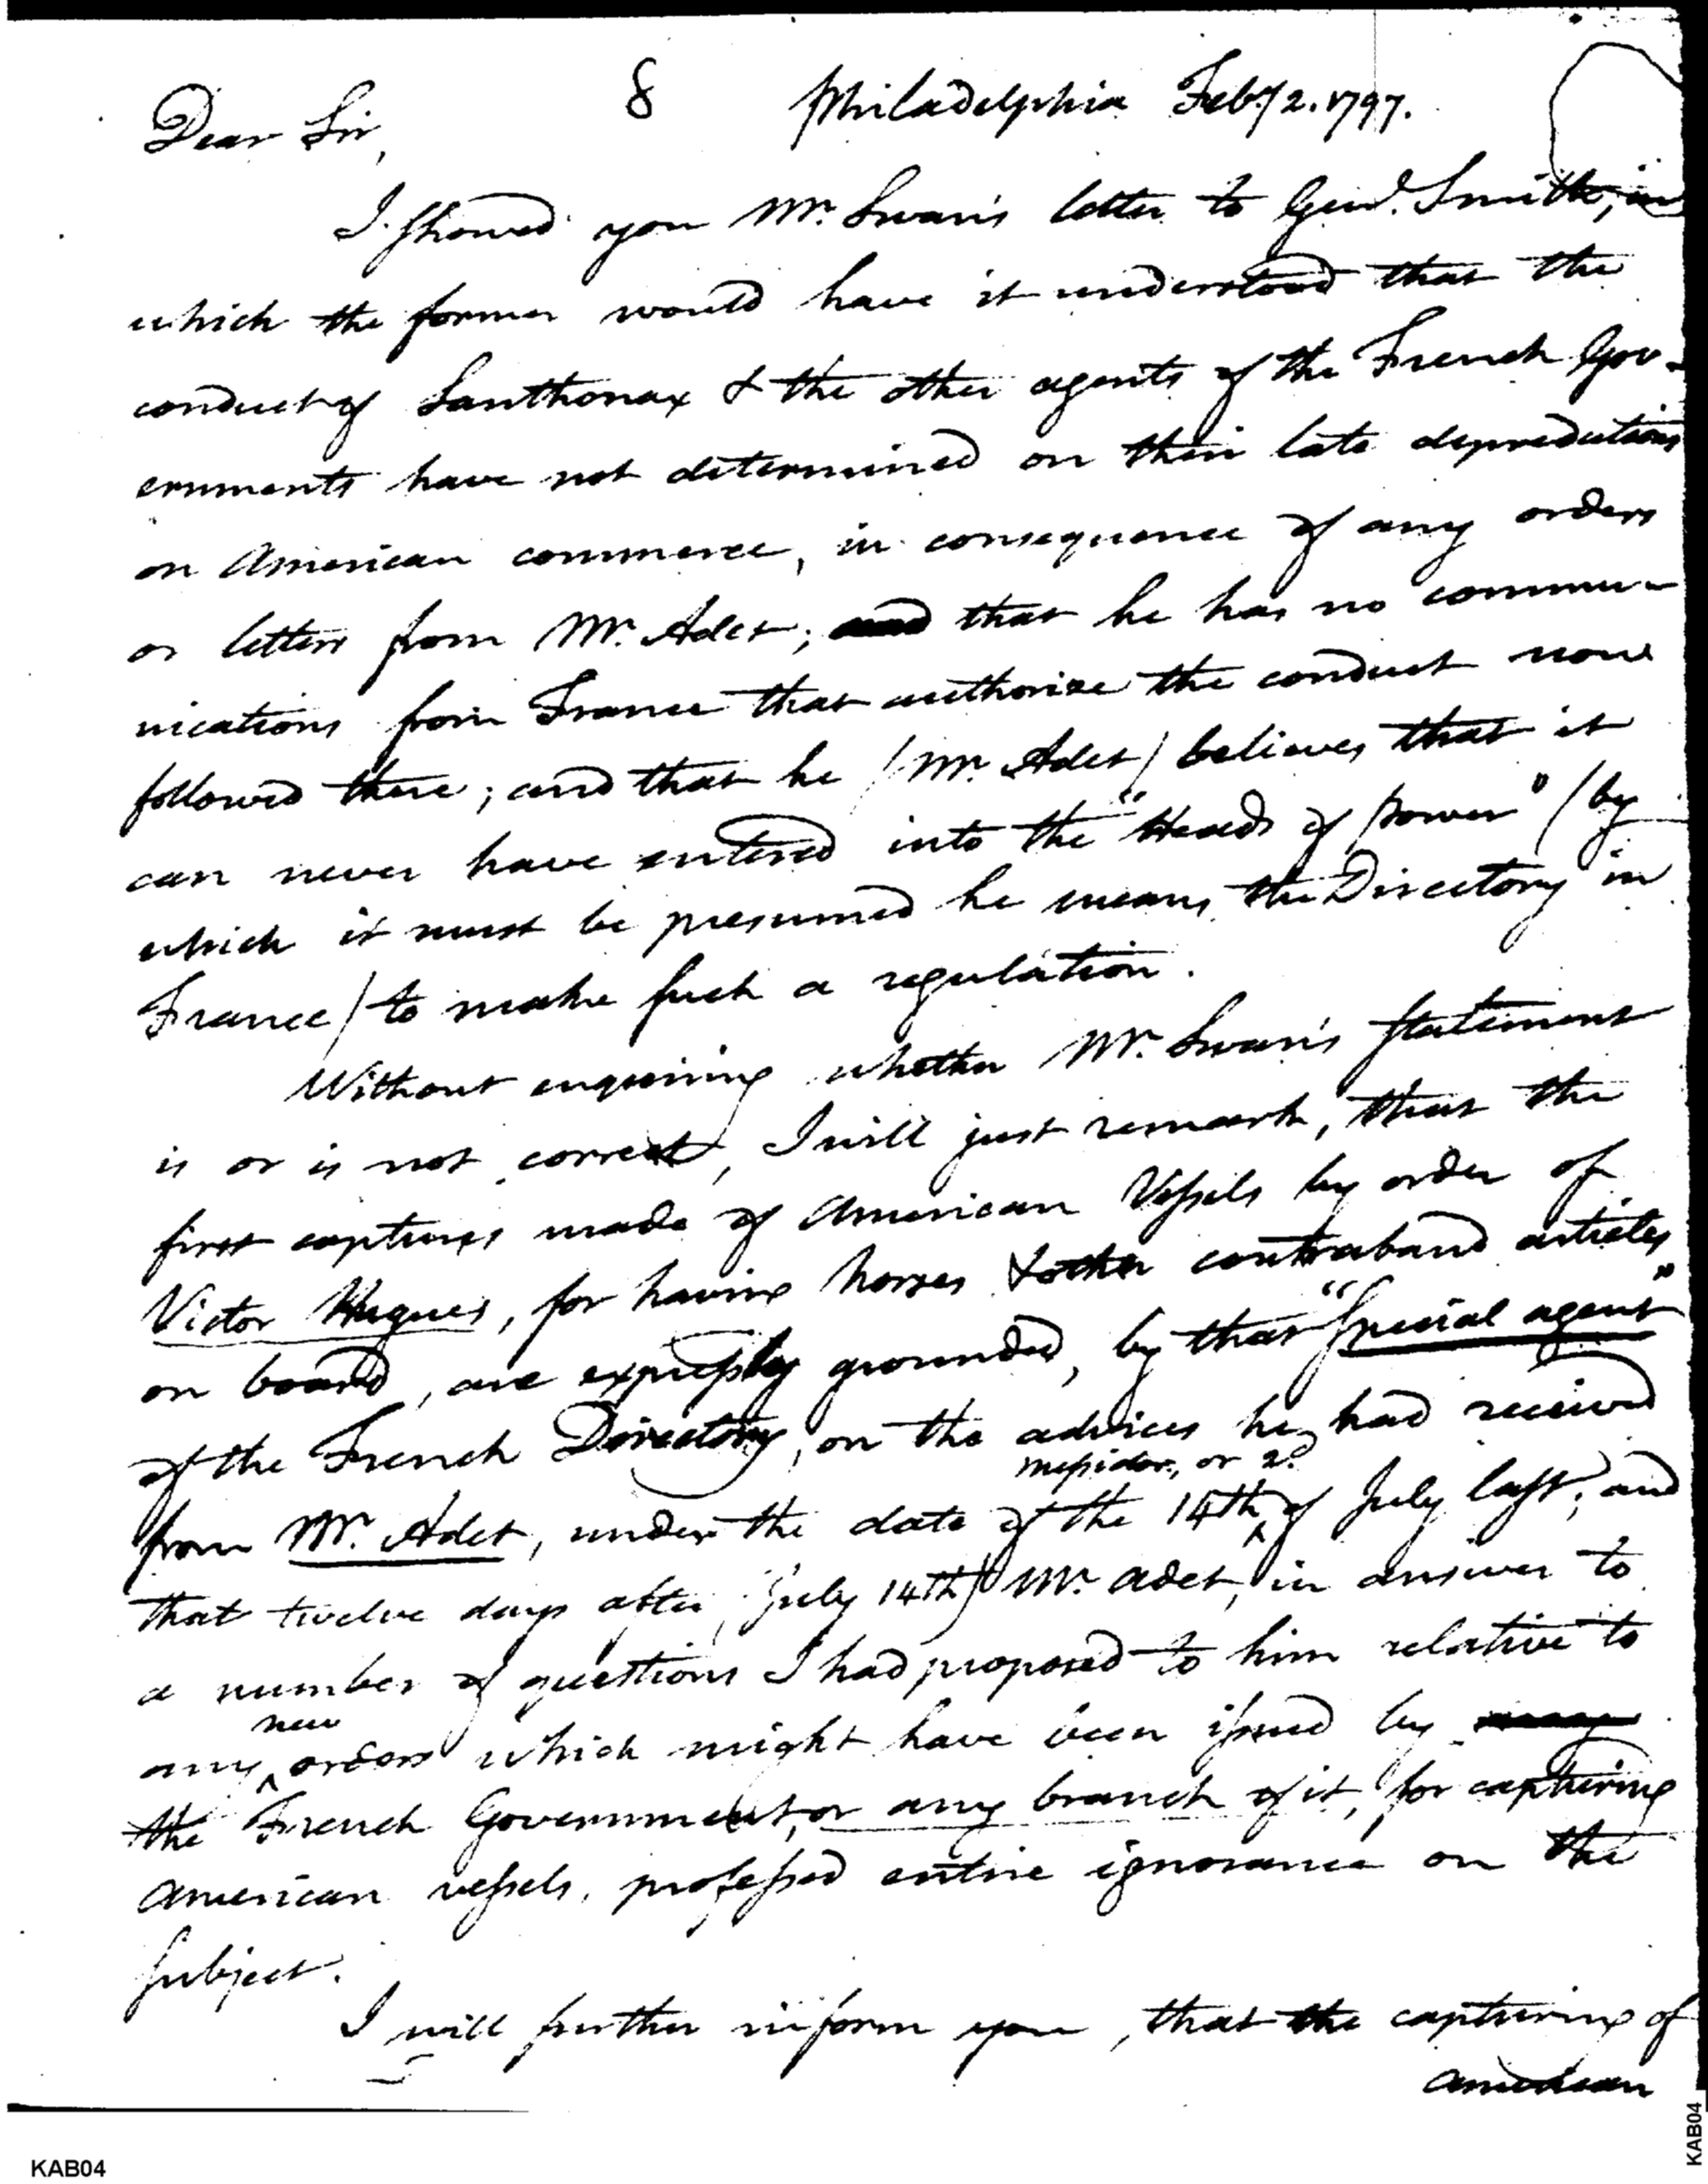 8 Philadelphia Feby 2. 1797.
Dear Sir,
I showed you Mr. Swan's letter to Genl. Smith, in
which the former would have it understood that the
conduct of Santhonax & the other agents of the French Gov-
ernments have not determined on their late depredations
on American commerce, in consequence of any orders
or letters from Mr. Adet; and that he has no commu-
nications from France that authorize the conduct now
followed there; and that he (Mr. Adet) believes that it
can never have entered into the "Heads of power" (by
which it must be presumed he means the Directory in
France) to make such a regulation.
Without enquiring whether Mr. Swan's statement
is or is not correct, I will just remark, that the
first captures made of American Vessels by order of
Victor Hugues, for having horses & other contraband articles
on board, are expressly grounded, by that "special agent"
of the French Directory, on the advices he had received
messidor, or 2d
from Mr. Adet, under the date of the 14th of July last; and
that twelve days after, (July 14th) Mr. Adet, in answer to
a number of questions I had proposed to him relative to
new
any orders which might have been issued by
the French Government, or any branch of it, for capturing
American vessels, professed entire ignorance on the
subject.
I will further inform you, that the capturing of
American
KAB04
KAB04